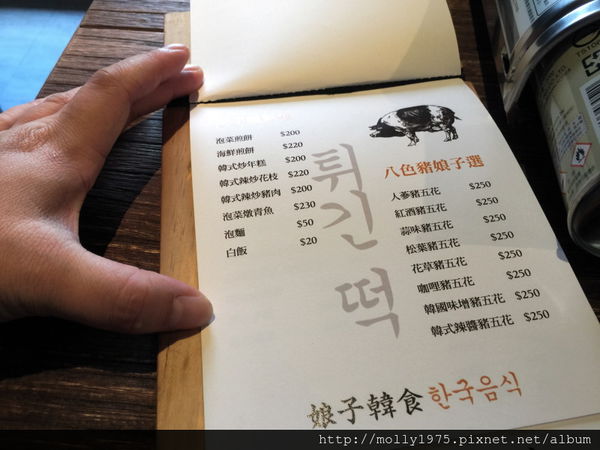 泡菜煎餅 $200
海鮮煎餅 $220
韓式炒年糕 $200
韓式辣炒花枝 $220
韓式辣炒豬肉 $200
泡菜燉青魚 $230
泡麵 $50
白飯 $20
튀긴떡
八色豬娘子選
人蔘豬五花 $250
紅酒豬五花 $250
蒜味豬五花 $250
松葉豬五花 $250
花草豬五花 $250
咖哩豬五花 $250
韓國味增豬五花 $250
韓式辣醬豬五花 $250
娘子韓食 한국음식
http://molly1975.pixnet.net/album